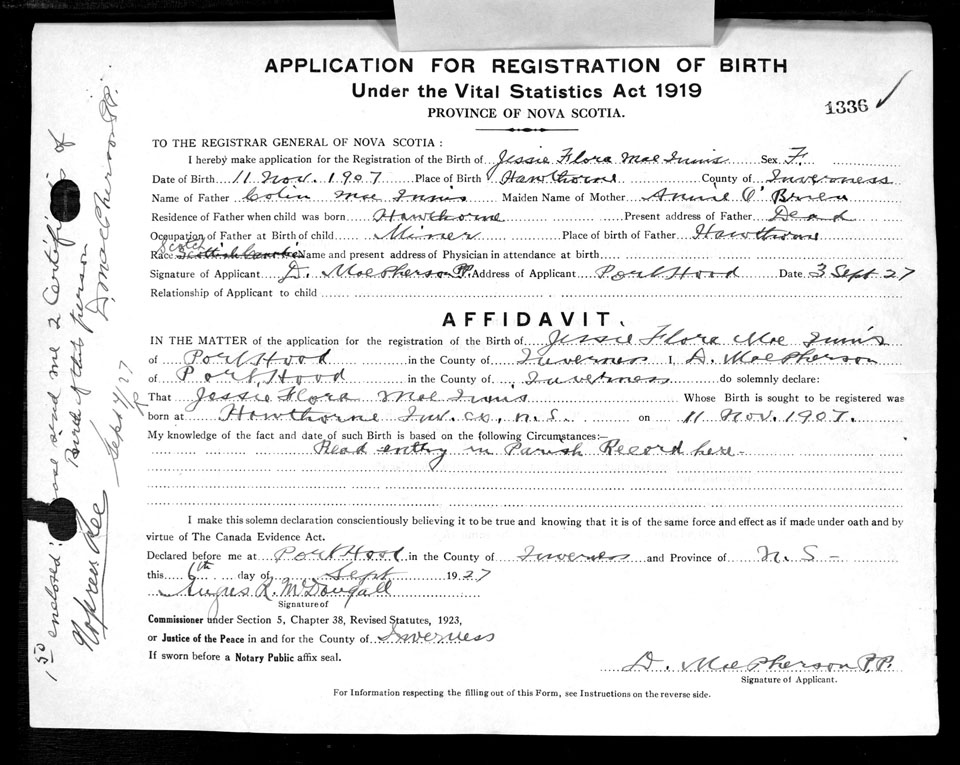 APPLICATION FOR REGISTRATION OF BIRTH
Under the Vital Statistics Act 1919
PROVINCE OF NOVA SCOTIA.
1336
TO THE REGISTRAR GENERAL OF NOVA SCOTIA :
I hereby make application for the Registration of the Birth of Jessie Flora Mac Innis Sex F.
Date of Birth 11 Nov. 1907 Place of Birth Hawthorne County of Inverness
Name of Father Colin Mac Innis Maiden Name of Mother Annie O' Brien
Residence of Father when child was born Hawthorne Present address of Father Dead
Occupation of Father at Birth of child Miner Place of birth of Father Hawthorne
Scotch
Race Scottish Name and present address of Physician in attendance at birth
Signature of Applicant D. MacPherson P.P. Address of Applicant Port Hood Date 3 Sept 27
Relationship of Applicant to child
AFFIDAVIT.
IN THE MATTER of the application for the registration of the Birth of Jessie Flora Mac Innis
of Port Hood in the County of Inverness I, D. MacPherson
of Port Hood in the County of Inverness do solemnly declare:
That Jessie Flora Mac Innis Whose Birth is sought to be registered was
born at Hawthorne Inv. Co. N.S. on 11 Nov. 1907.
My knowledge of the fact and date of such Birth is based on the following Circumstances:—
Read entry in Parish Record here -
I make this solemn declaration conscientiously believing it to be true and knowing that it is of the same force and effect as if made under oath and by
virtue of The Canada Evidence Act.
Declared before me at Port Hood in the County of Inverness and Province of N. S -
this 6th day of Sept 1927
Angus R. McDougall
Signature of
Commissioner under Section 5, Chapter 38, Revised Statutes, 1923,
or Justice of the Peace in and for the County of Inverness
If sworn before a Notary Public affix seal.
D. MacPherson P.P.
Signature of Applicant.
For Information respecting the filling out of this Form, see Instructions on the reverse side.
1 50 enclosed: send me 2 Certificates of
Birth of this person
D. MacPherson P.P.
Sept 9/27
R
Fee